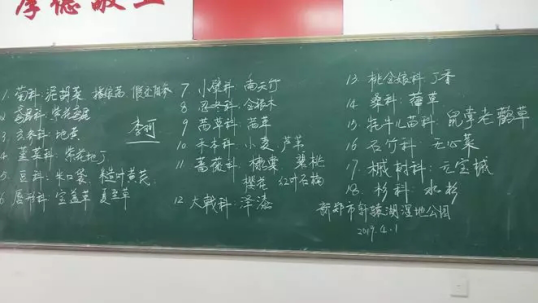 厚德敬业
1. 菊科 泥胡菜
2.
3. 玄参科 地黄
4. 堇菜科 紫花地丁
5. 豆科 米口袋 糙叶黄芪
6. 唇形科 宝盖草 夏至草
李珂
7 小檗科 南天竹
8 忍冬科 金银木
9 茜草科 茜草
10 禾本科 小麦 芦苇
11 蔷薇科 棣棠 樱桃
樱花 红叶石楠
12 大戟科 泽漆
13. 桃金娘科 丁香
14. 桑科 葎草
15. 牻牛儿苗科 鼠李老鹳草
16. 石竹科 无心菜
17. 槭树科 元宝槭
18. 杉科 水杉
新郑市轩辕湖湿地公园
2019.4.1